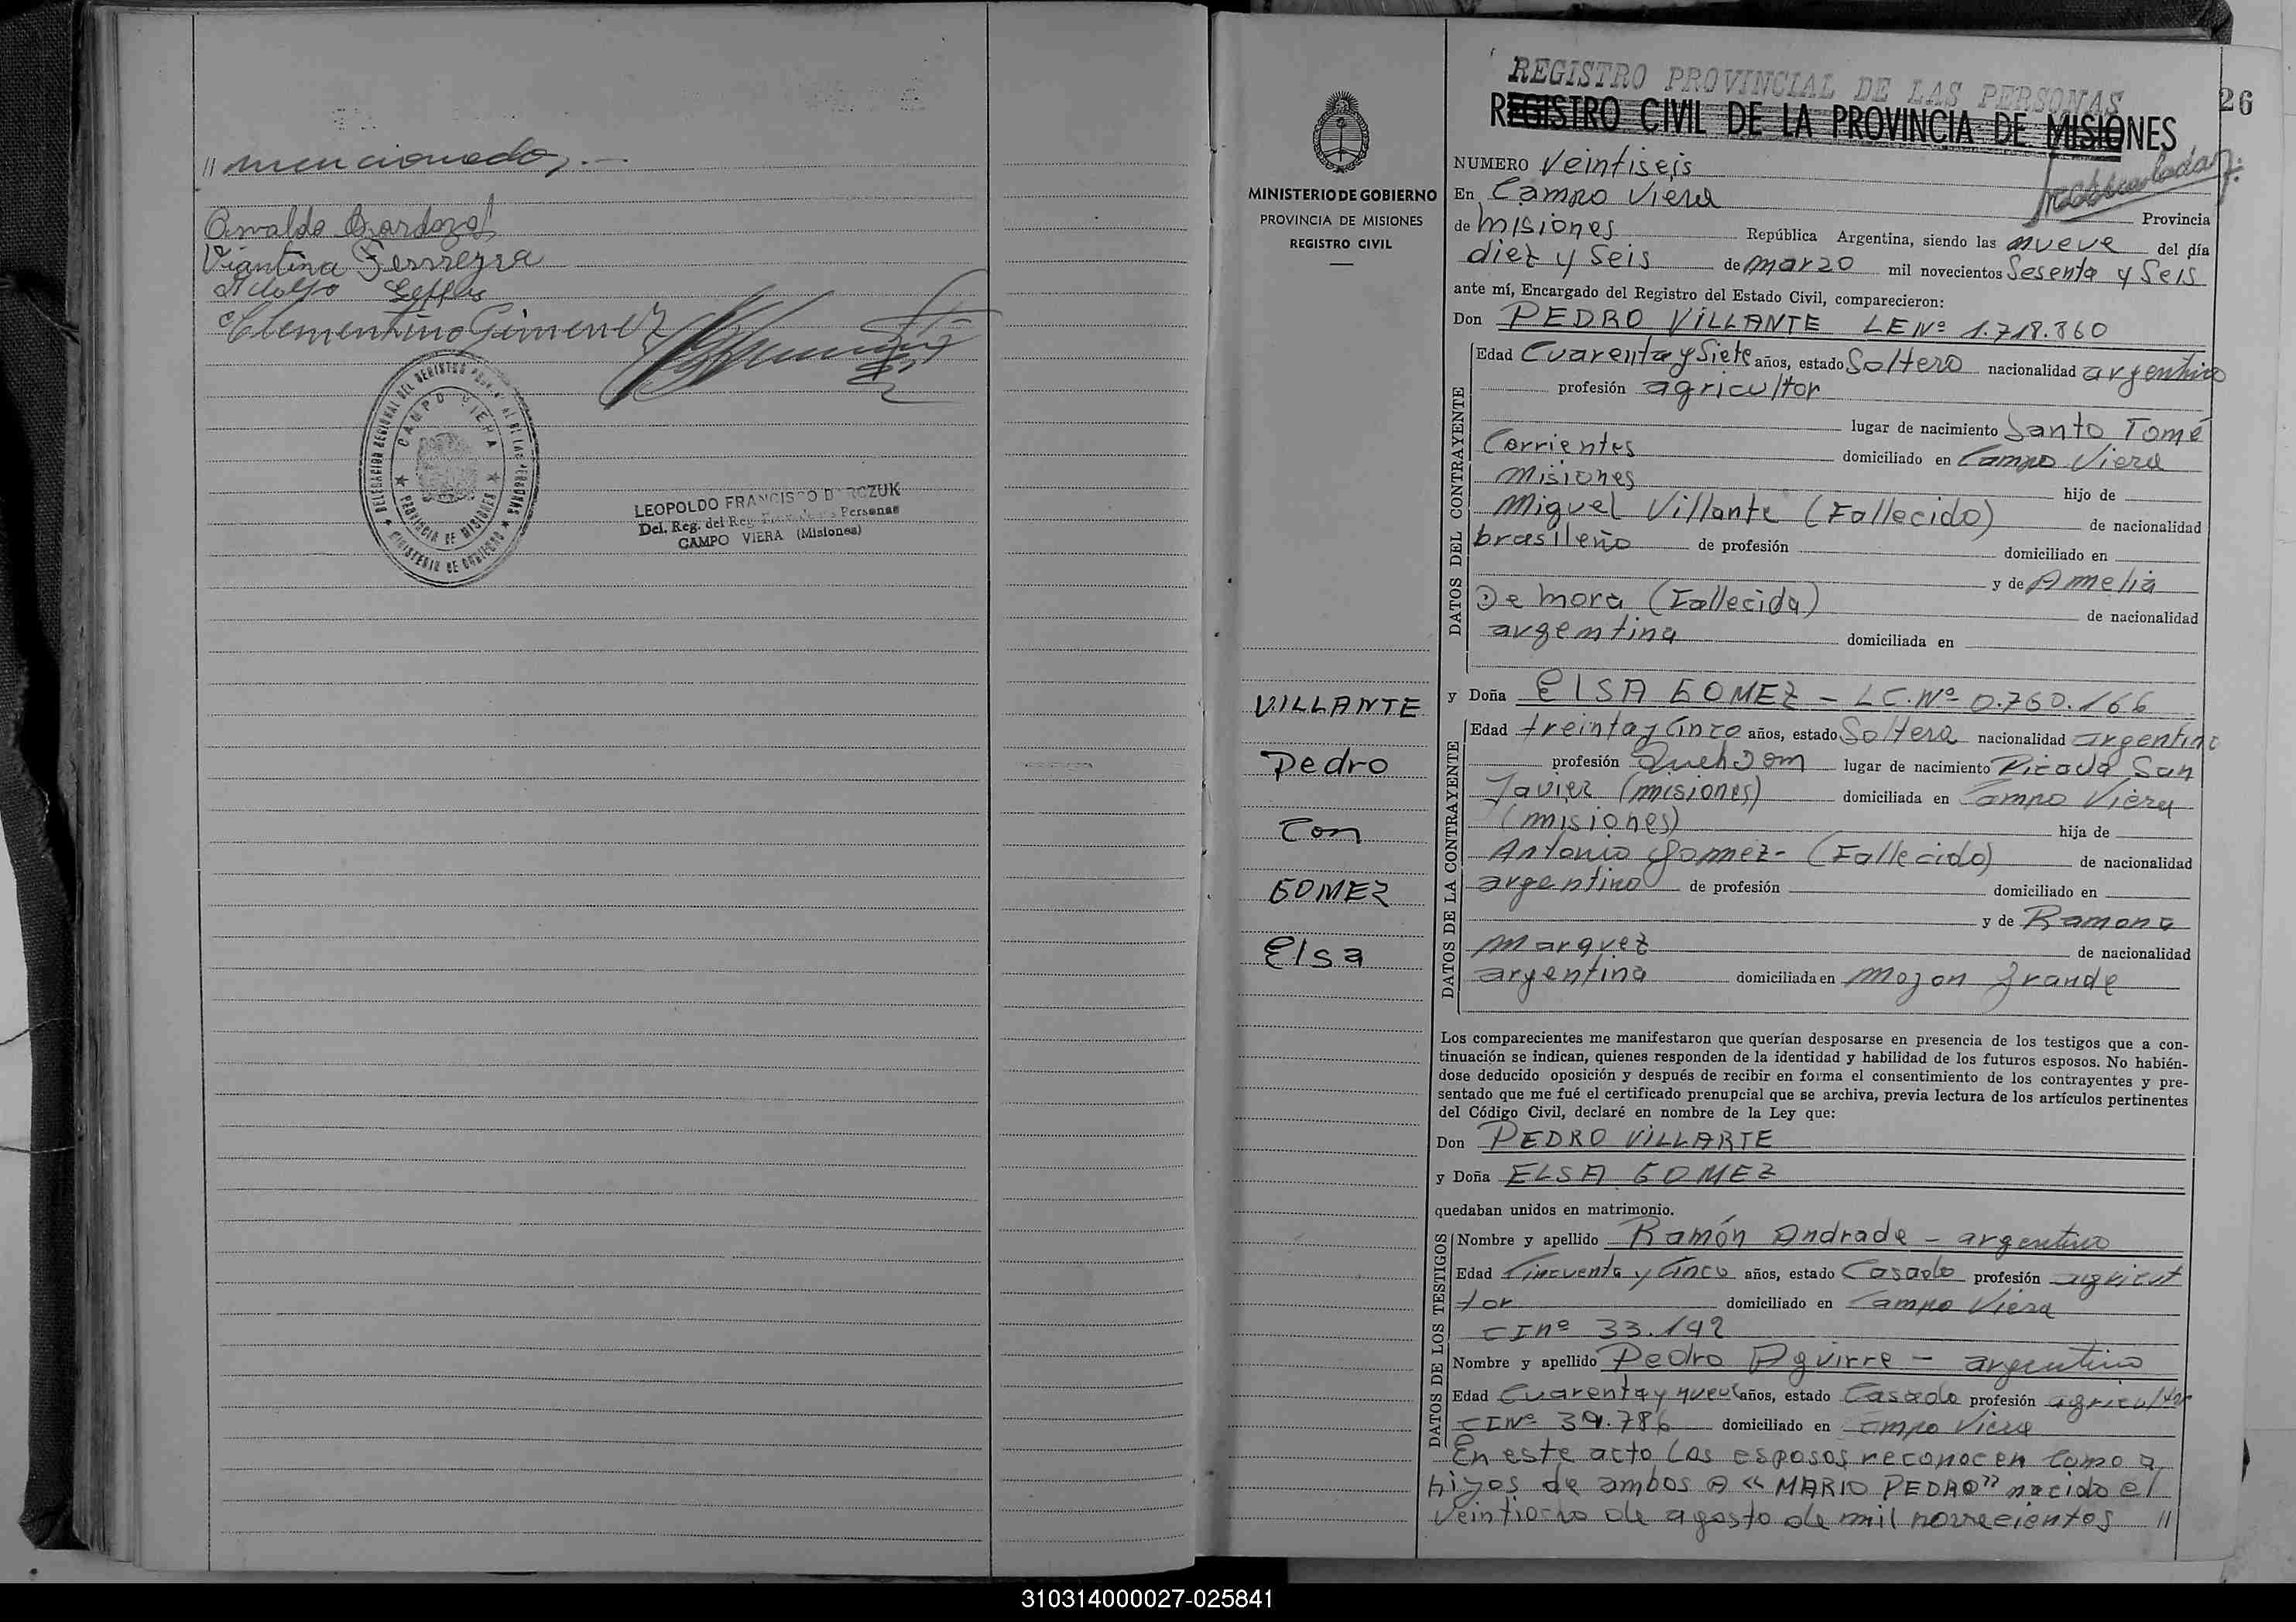 " mencionados.—
Osvaldo Cardozo
Viantina Ferreyra
Adolfo
Clementino Gimenez
DELEGACION REGIONAL DEL REGISTRO PROVINCIAL DE LAS PERSONAS
CAMPO VIERA
PROVINCIA DE MISIONES
MINISTERIO DE GOBIERNO
LEOPOLDO FRANCISCO
Del. Reg. del Reg. Personas
CAMPO VIERA (Misiones)
MINISTERIO DE GOBIERNO
PROVINCIA DE MISIONES
REGISTRO CIVIL
VILLANTE
Pedro
Con
GOMEZ
Elsa
REGISTRO PROVINCIAL DE LAS PERSONAS
REGISTRO CIVIL DE LA PROVINCIA DE MISIONES
26
NUMERO Veintiseis
En Campo Viera Provincia
de Misiones República Argentina, siendo las nueve del día
diez y Seis de marzo mil novecientos Sesenta y Seis
ante mí, Encargado del Registro del Estado Civil, comparecieron:
Don PEDRO VILLANTE LE Nº 1.718.860
DATOS DEL CONTRAYENTE
Edad Cuarenta y Siete años, estado Soltero nacionalidad argentino
profesión agricultor
lugar de nacimiento Santo Tomé
Corrientes domiciliado en Campo Viera
Misiones hijo de
Miguel Villante (Fallecido) de nacionalidad
brasileño de profesión domiciliado en
y de Amelia
De Mora (Fallecida) de nacionalidad
argentina domiciliada en
y Doña ELSA GOMEZ - LC. Nº 0.760.166
DATOS DE LA CONTRAYENTE
Edad treinta y Cinco años, estado Soltera nacionalidad argentina
profesión Queh Dom lugar de nacimiento Picada San
Javier (misiones) domiciliada en Campo Viera
(misiones) hija de
Antonio Gomez- (Fallecido) de nacionalidad
argentino de profesión domiciliado en
y de Ramona
Marquez de nacionalidad
argentina domiciliada en Mojon Grande
Los comparecientes me manifestaron que querían desposarse en presencia de los testigos que a con-
tinuación se indican, quienes responden de la identidad y habilidad de los futuros esposos. No habién-
dose deducido oposición y después de recibir en forma el consentimiento de los contrayentes y pre-
sentado que me fué el certificado prenupcial que se archiva, previa lectura de los artículos pertinentes
del Código Civil, declaré en nombre de la Ley que:
Don PEDRO VILLARTE
y Doña ELSA GOMEZ
quedaban unidos en matrimonio.
DATOS DE LOS TESTIGOS
Nombre y apellido Ramón Andrade - argentino
Edad Cincuenta y Cinco años, estado Casado profesión agricul
tor domiciliado en Campo Viera
CI nº 33.142
Nombre y apellido Pedro Aguirre - argentino
Edad Cuarenta y nueve años, estado Casado profesión agricultor
CI Nº 39.786 domiciliado en Campo Viera
En este acto los esposos reconocen como a
hijos de ambos a « MARIO PEDRO" nacido el
Veintiocho de agosto de mil novecientos "
310314000027-025841